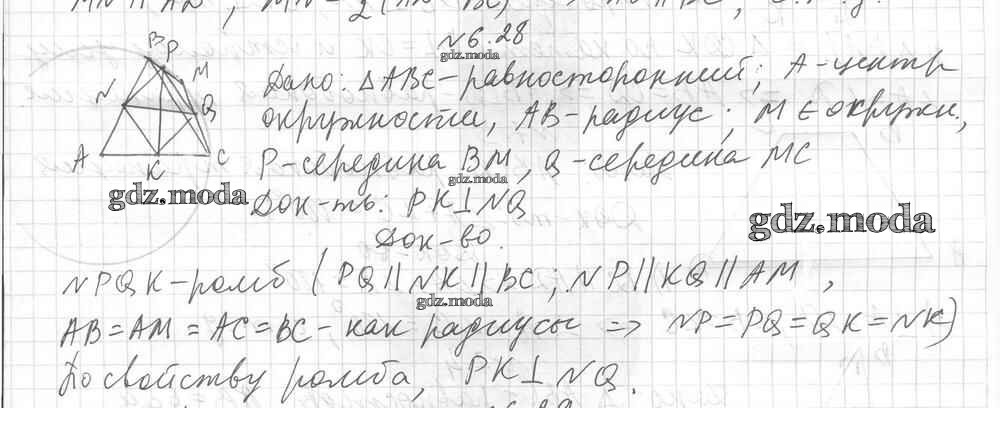 MN || AD, MN = 1/2 (AD - BC)
№6.28
gdz.moda
Дано: △ABC – равносторонний; A – центр
окружности, AB – радиус; M ∈ окружн.,
P – середина BM, Q – середина MC
gdz.moda
B
P
M
N
Q
A
K
C
gdz.moda
Док-ть: PK ⊥ NQ
gdz.moda
Док-во.
NPQK – ромб (PQ || NK || BC; NP || KQ || AM,
gdz.moda
AB = AM = AC = BC – как радиусы => NP = PQ = QK = NK)
По свойству ромба, PK ⊥ NQ.